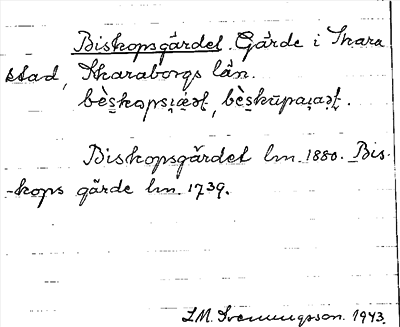 Biskopsgärdet. Gärde i Skara
stad, Skaraborgs län.
Biskopsgärdet lm. 1880. Bis-
-kops gärde lm. 1739.
L.M. Svenungsson. 1943.